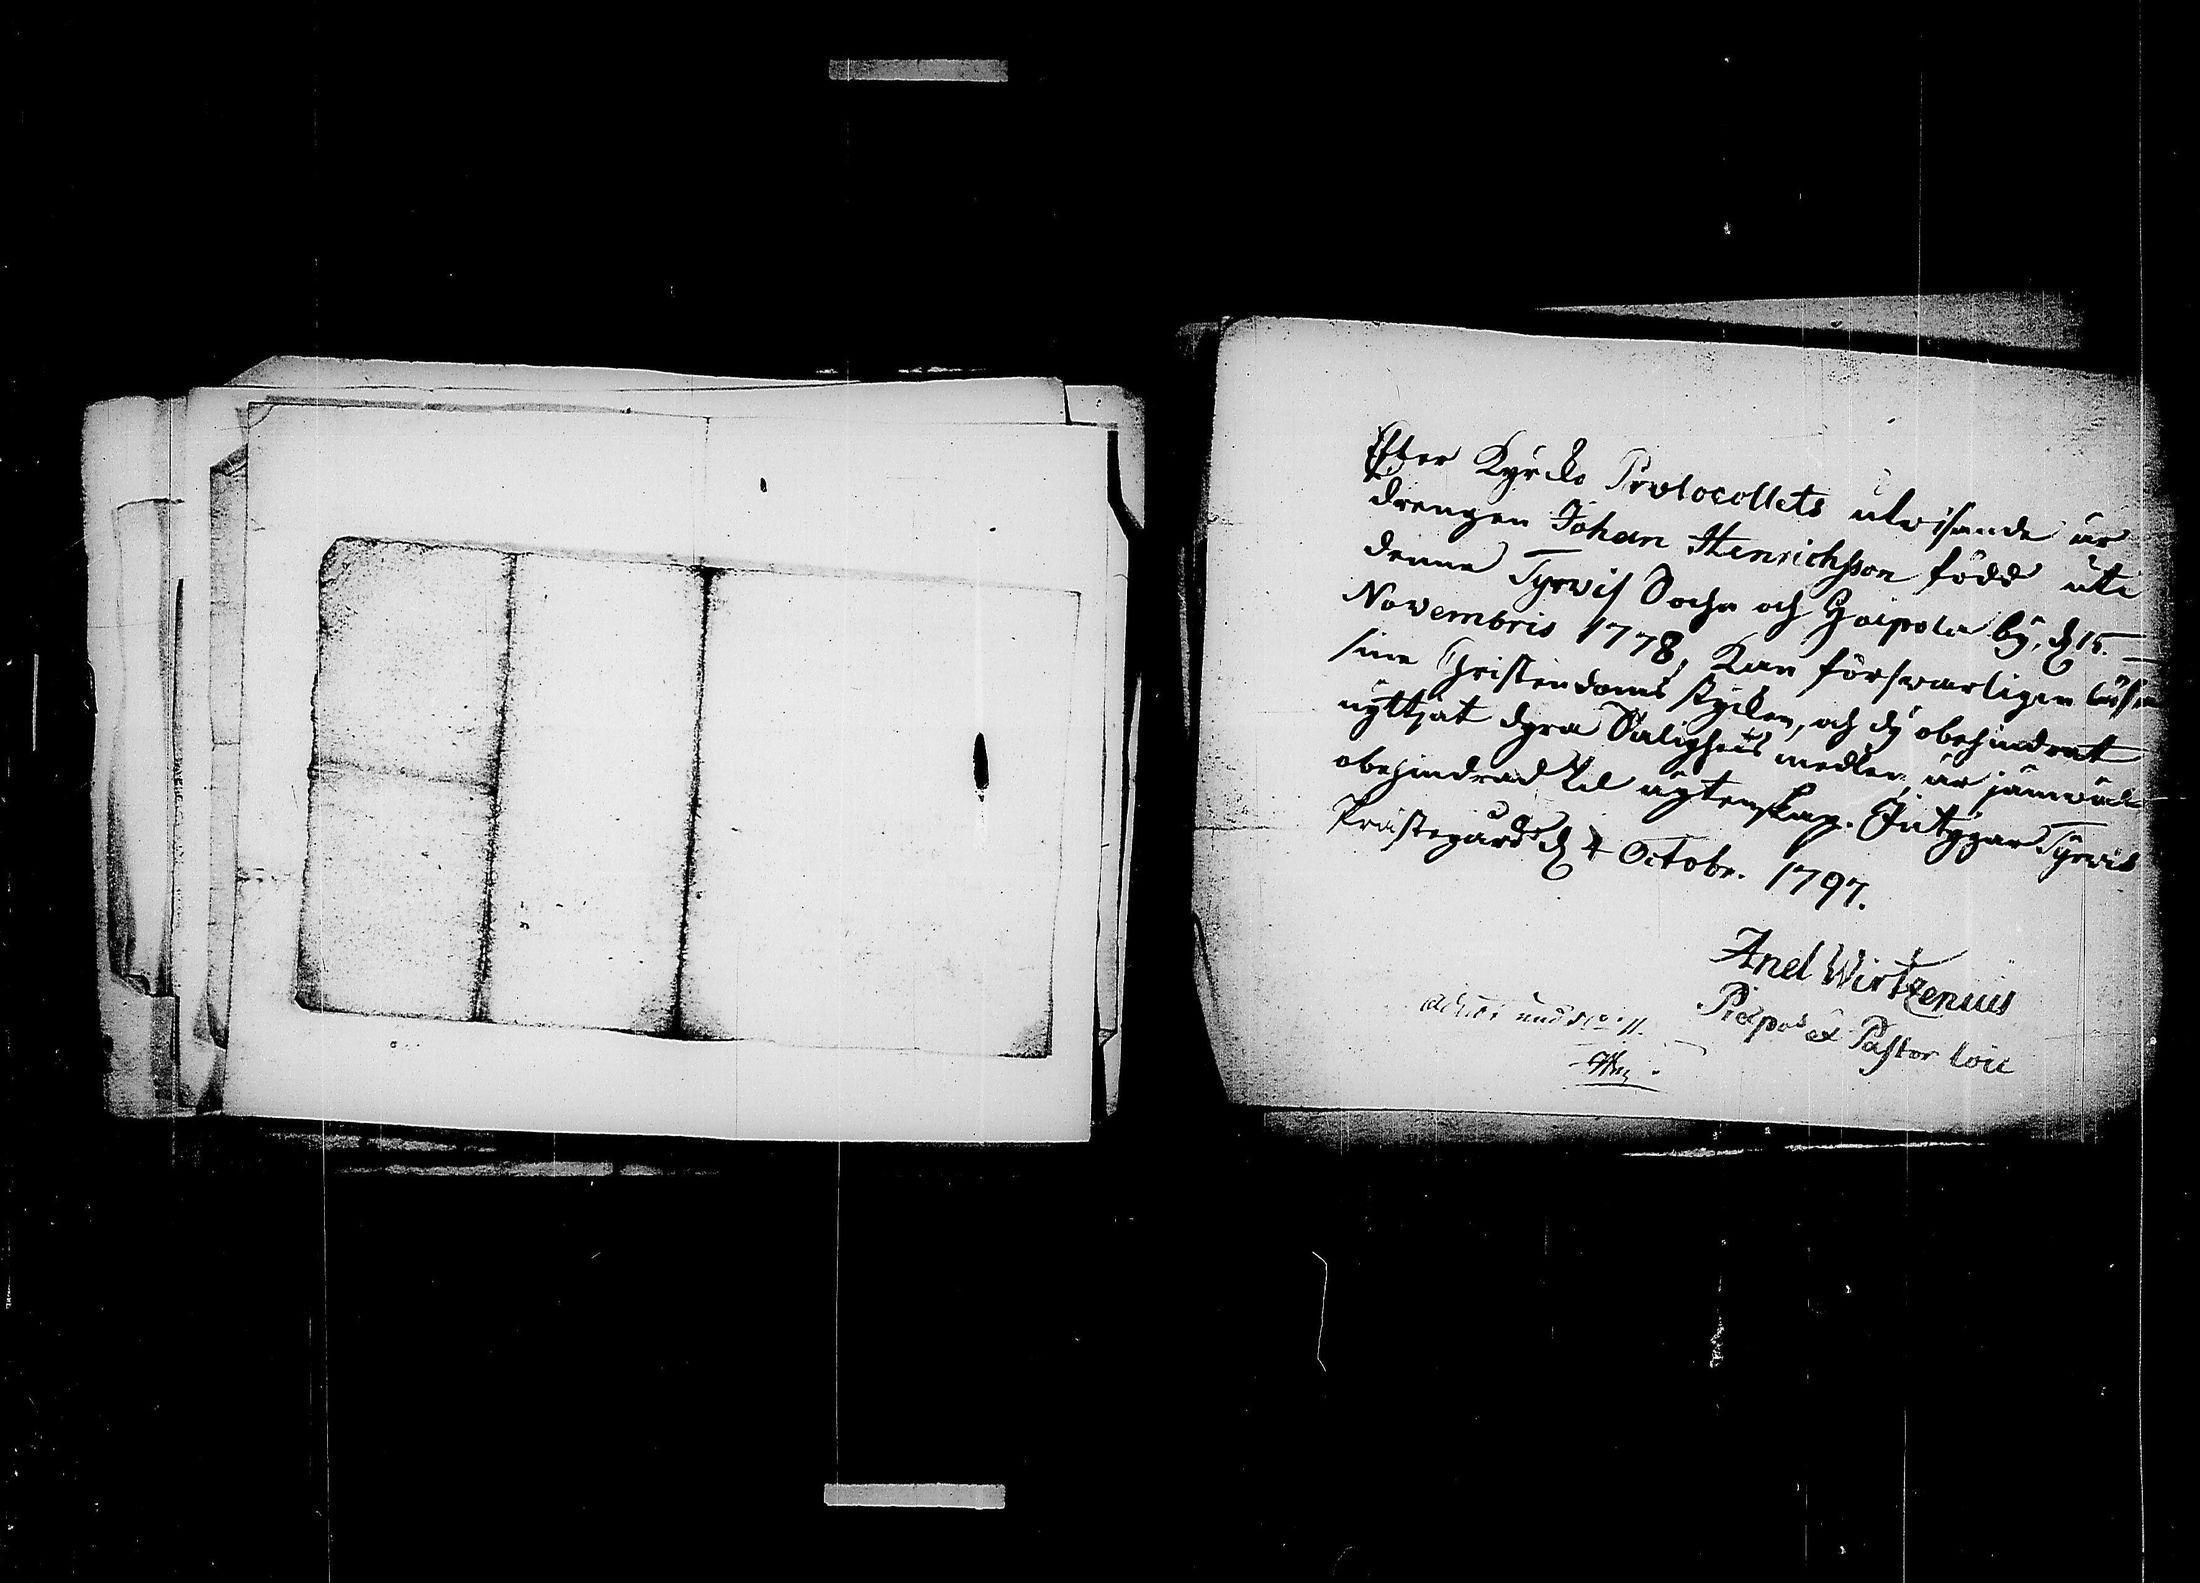 Efter Kyrcko Protocollets utwisande är
drengen Johan Henrichsson född uti
denna Tyrvis Sochn och Gaipola by, d. 15.
Novembris 1778, Kan försvarligen läsa
sina Christendoms stycken, och dy obehindrat
nyttjat dyra Salighets medlen, är jämväl
obehindrad til ägtenskap. Intygar Tyrvis
Prästegård d. 4 Octobr. 1797.
Axel Wirtzenius
Præpos. et Pastor loci